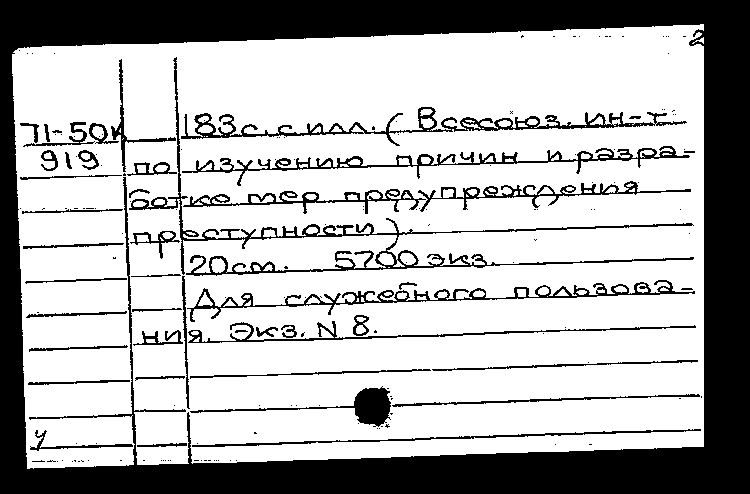 2
71-50к 183с. с илл. ( Всесоюз. ин-т
919 по изучению причин и разра-
ботке мер предупреждения
преступности ).
20см. 5700 экз.
Для служебного пользова-
ния. Экз. N 8.
у